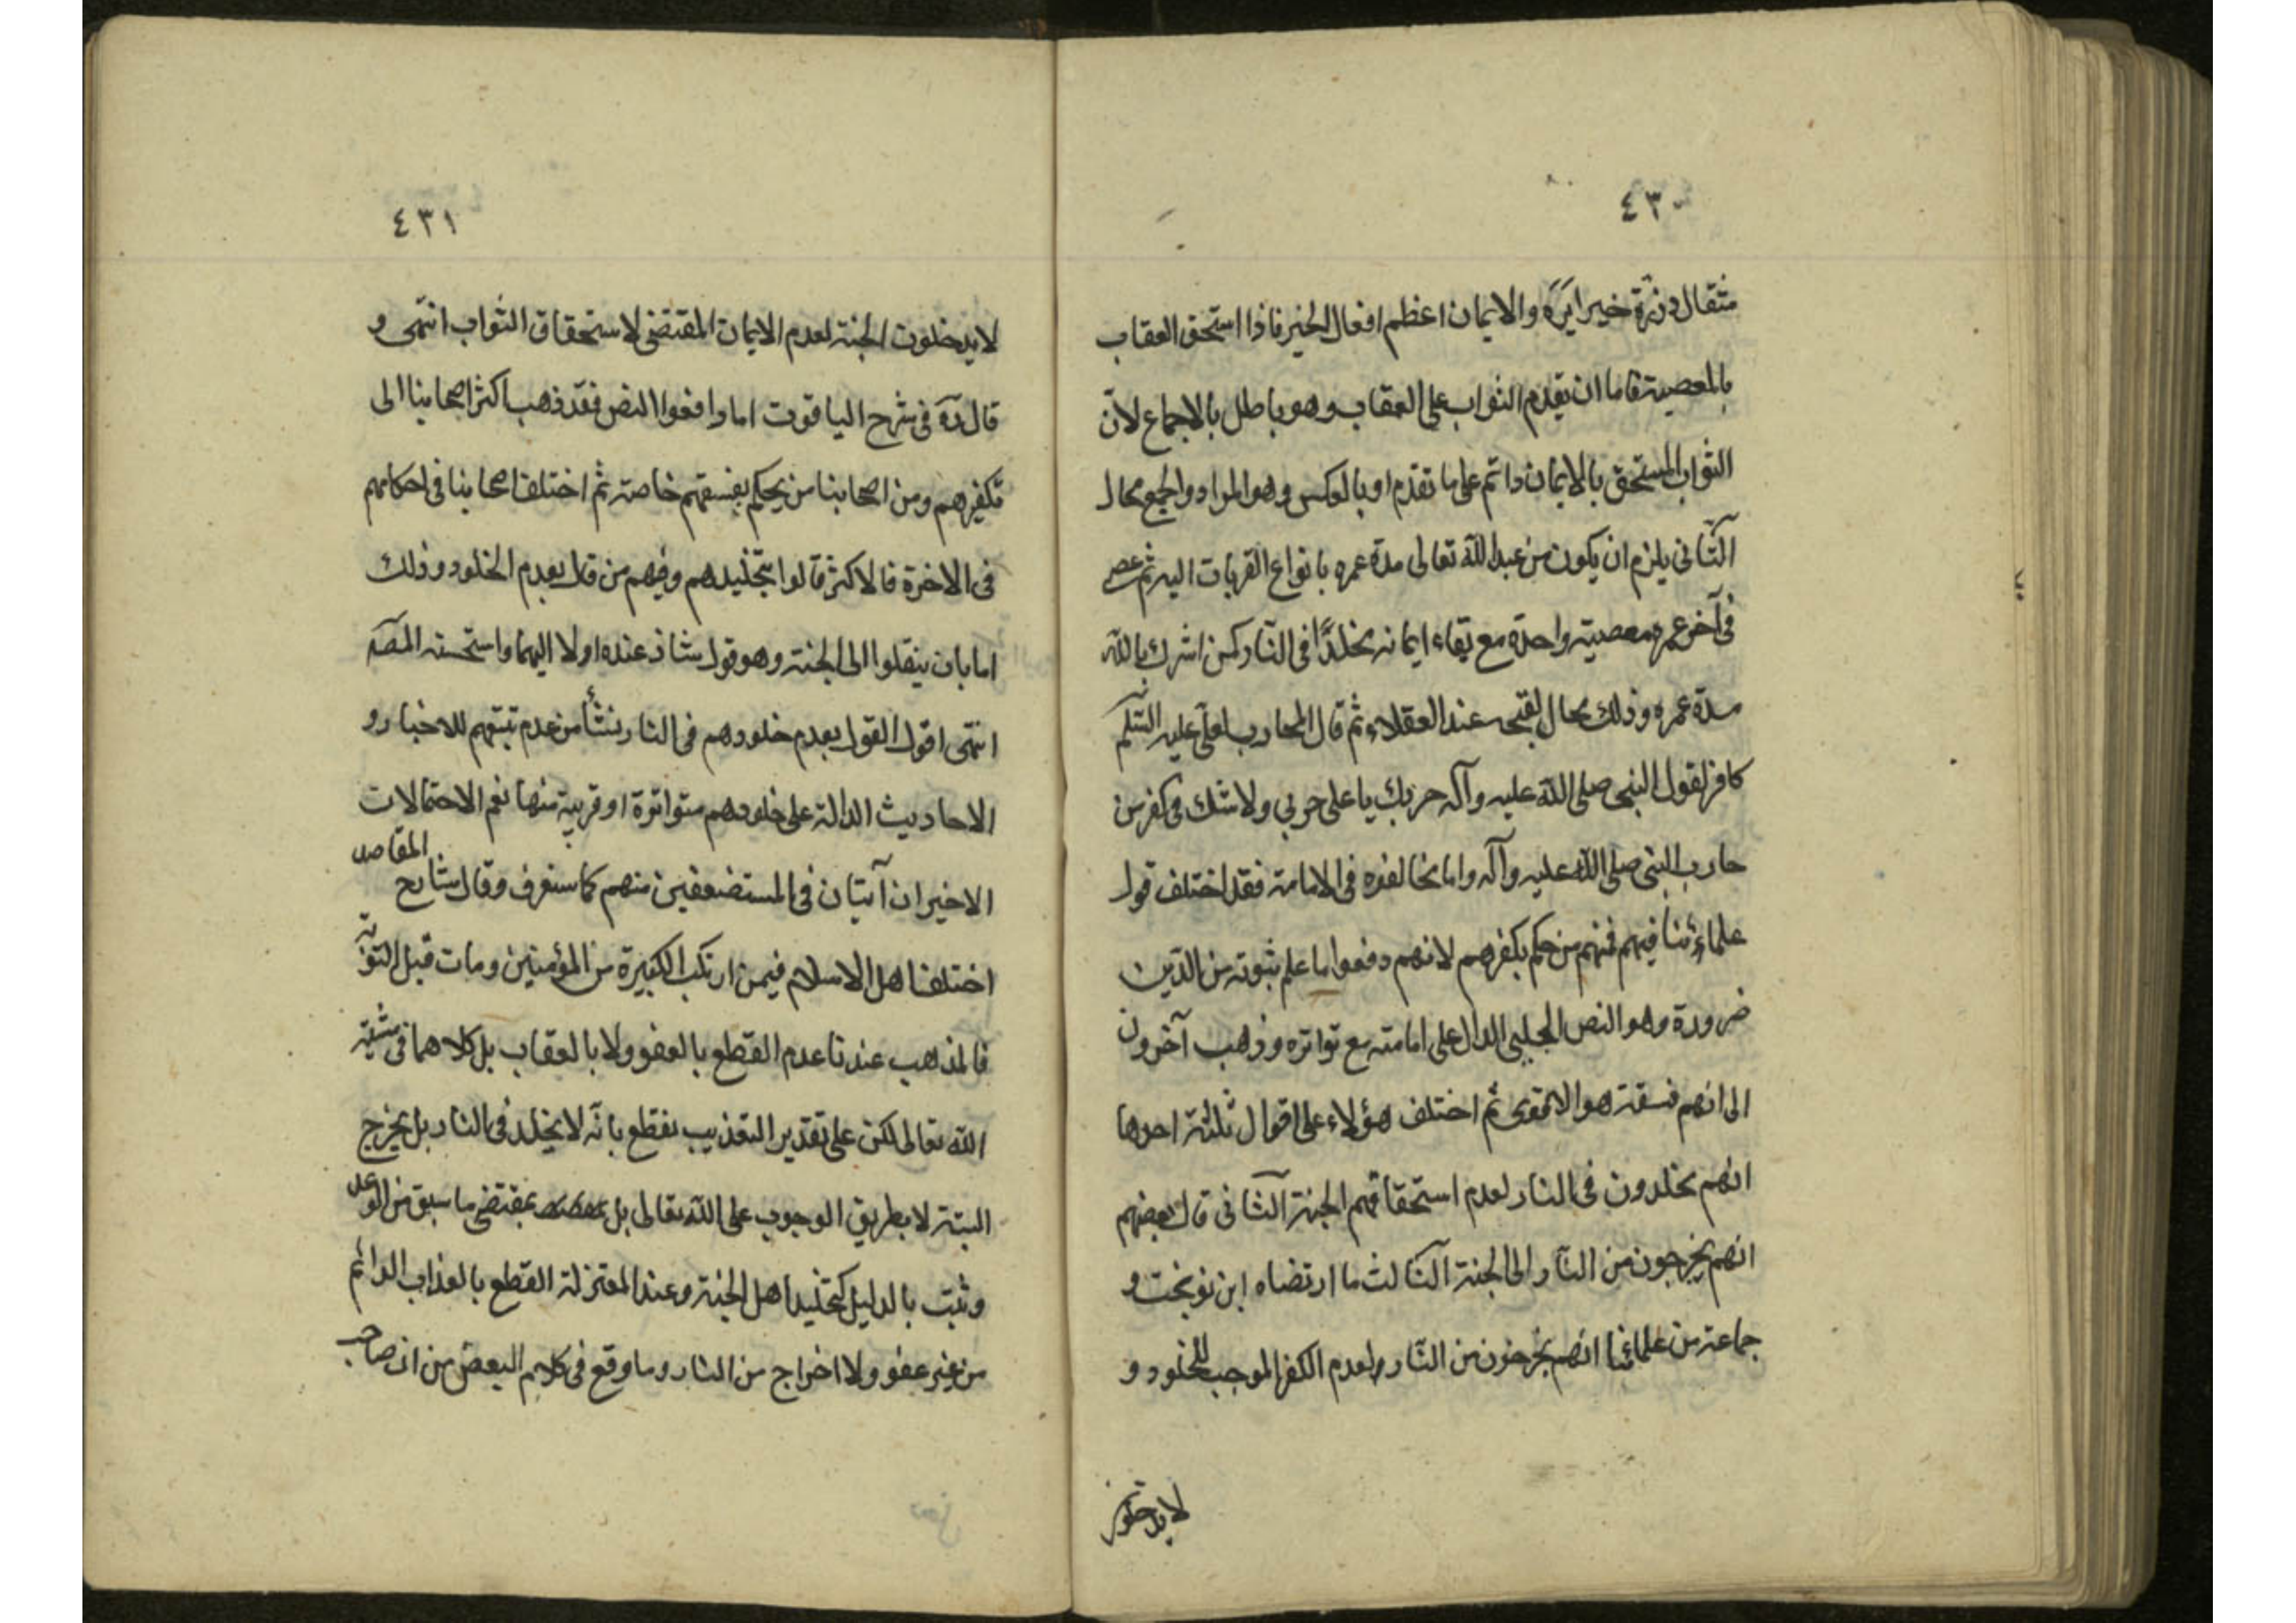 ٤٣٠
مثقال ذرّة خيرا يَرَه والايمان اعظم افعال الخير فاذا استحق العقاب
بالمعصية فاما ان يقدم الثواب على العقاب وهو باطل بالاجماع لانّ
الثواب المستحق بالايمان دائم على ما تقدم او بالعكس وهو المراد والجمع محال
الثانى يلزم ان يكون من عبد الله تعالى مدة عمره بانواع القربات اليه ثم عصى
فى آخر عمره معصية واحدة مع بقاء ايمانه مخلدًا فى النار كمن اشرك بالله
مدة عمره وذلك محال لقبحه عند العقلاء ثم قال المحارب لعلى عليه السلم
كافر لقول النبى صلى الله عليه وآله حربك يا على حربي ولا شك فى كفر من
حارب النبى صلى الله عليه وآله واما مخالفوه فى الامامة فقد اختلف قول
علماءنا فيهم فمنهم من حكم بكفرهم لانهم دفعوا ما علم ثبوته من الدّين
ضرورة وهو النص الجلي الدال على امامته مع تواتره وذهب آخرون
الى انهم فسقة هو الاقوى ثم اختلف هؤلاء على اقوال ثلثة احدها
انهم مخلدون فى النار لعدم استحقاقهم الجنة الثانى قال بعضهم
انهم يخرجون من النار الى الجنة الثالث ما ارتضاه ابن نوبخت و
جماعة من علمائنا انهم يخرجون من النار لعدم الكفر الموجب للخلود و
لا يدخلون
٤٣١
لا يدخلون الجنة لعدم الايمان المقتضى لاستحقاق الثواب انتهى و
قال ره فى شرح الياقوت اما دافعوا النص فقد ذهب اكثر اصحابنا الى
تكفيرهم ومن اصحابنا من يحكم بفسقهم خاصة ثم اختلف اصحابنا فى احكامهم
فى الاخرة فالاكثر قالوا بتخليدهم وفيهم من قال بعدم الخلود وذلك
اما بان ينقلوا الى الجنة وهو قول شاذ عنده اولا اليهما واستحسنه المصَ
انتهى اقول القول بعدم خلودهم فى النار نشأ من عدم تتبعهم للاخبار و
الاحاديث الدالة على خلودهم متواترة او قريبة منها نعم الاحتمالات
الاخيران آتيان فى المستضعفين منهم كما ستعرف وقال شارح المقاصد
اختلف اهل الاسلام فيمن ارتكب الكبيرة من المؤمنين ومات قبل التوبة
فالمذهب عندنا عدم القطع بالعفو ولا بالعقاب بل كلاهما فى مشية
الله تعالى لكن على تقدير التعذيب نقطع بانّه لا يخلد فى النار بل يخرج
البتة لا بطريق الوجوب على الله تعالى بل بمقتضى ما سبق من الوعد
وثبت بالدليل كتخليد اهل الجنة وعند المعتزلة القطع بالعذاب الدائم
من غير عفو ولا اخراج من النار وما وقع فى كلام البعض من ان صاحب